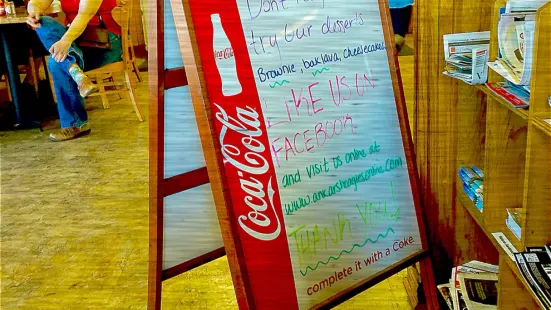 Don't
try our desserts
Brownie, baklava, cheesecake
LIKE US ON
FACEBOOK
and visit us online at
THANK YOU!
complete it with a Coke.
Coca-Cola
Coca-Cola